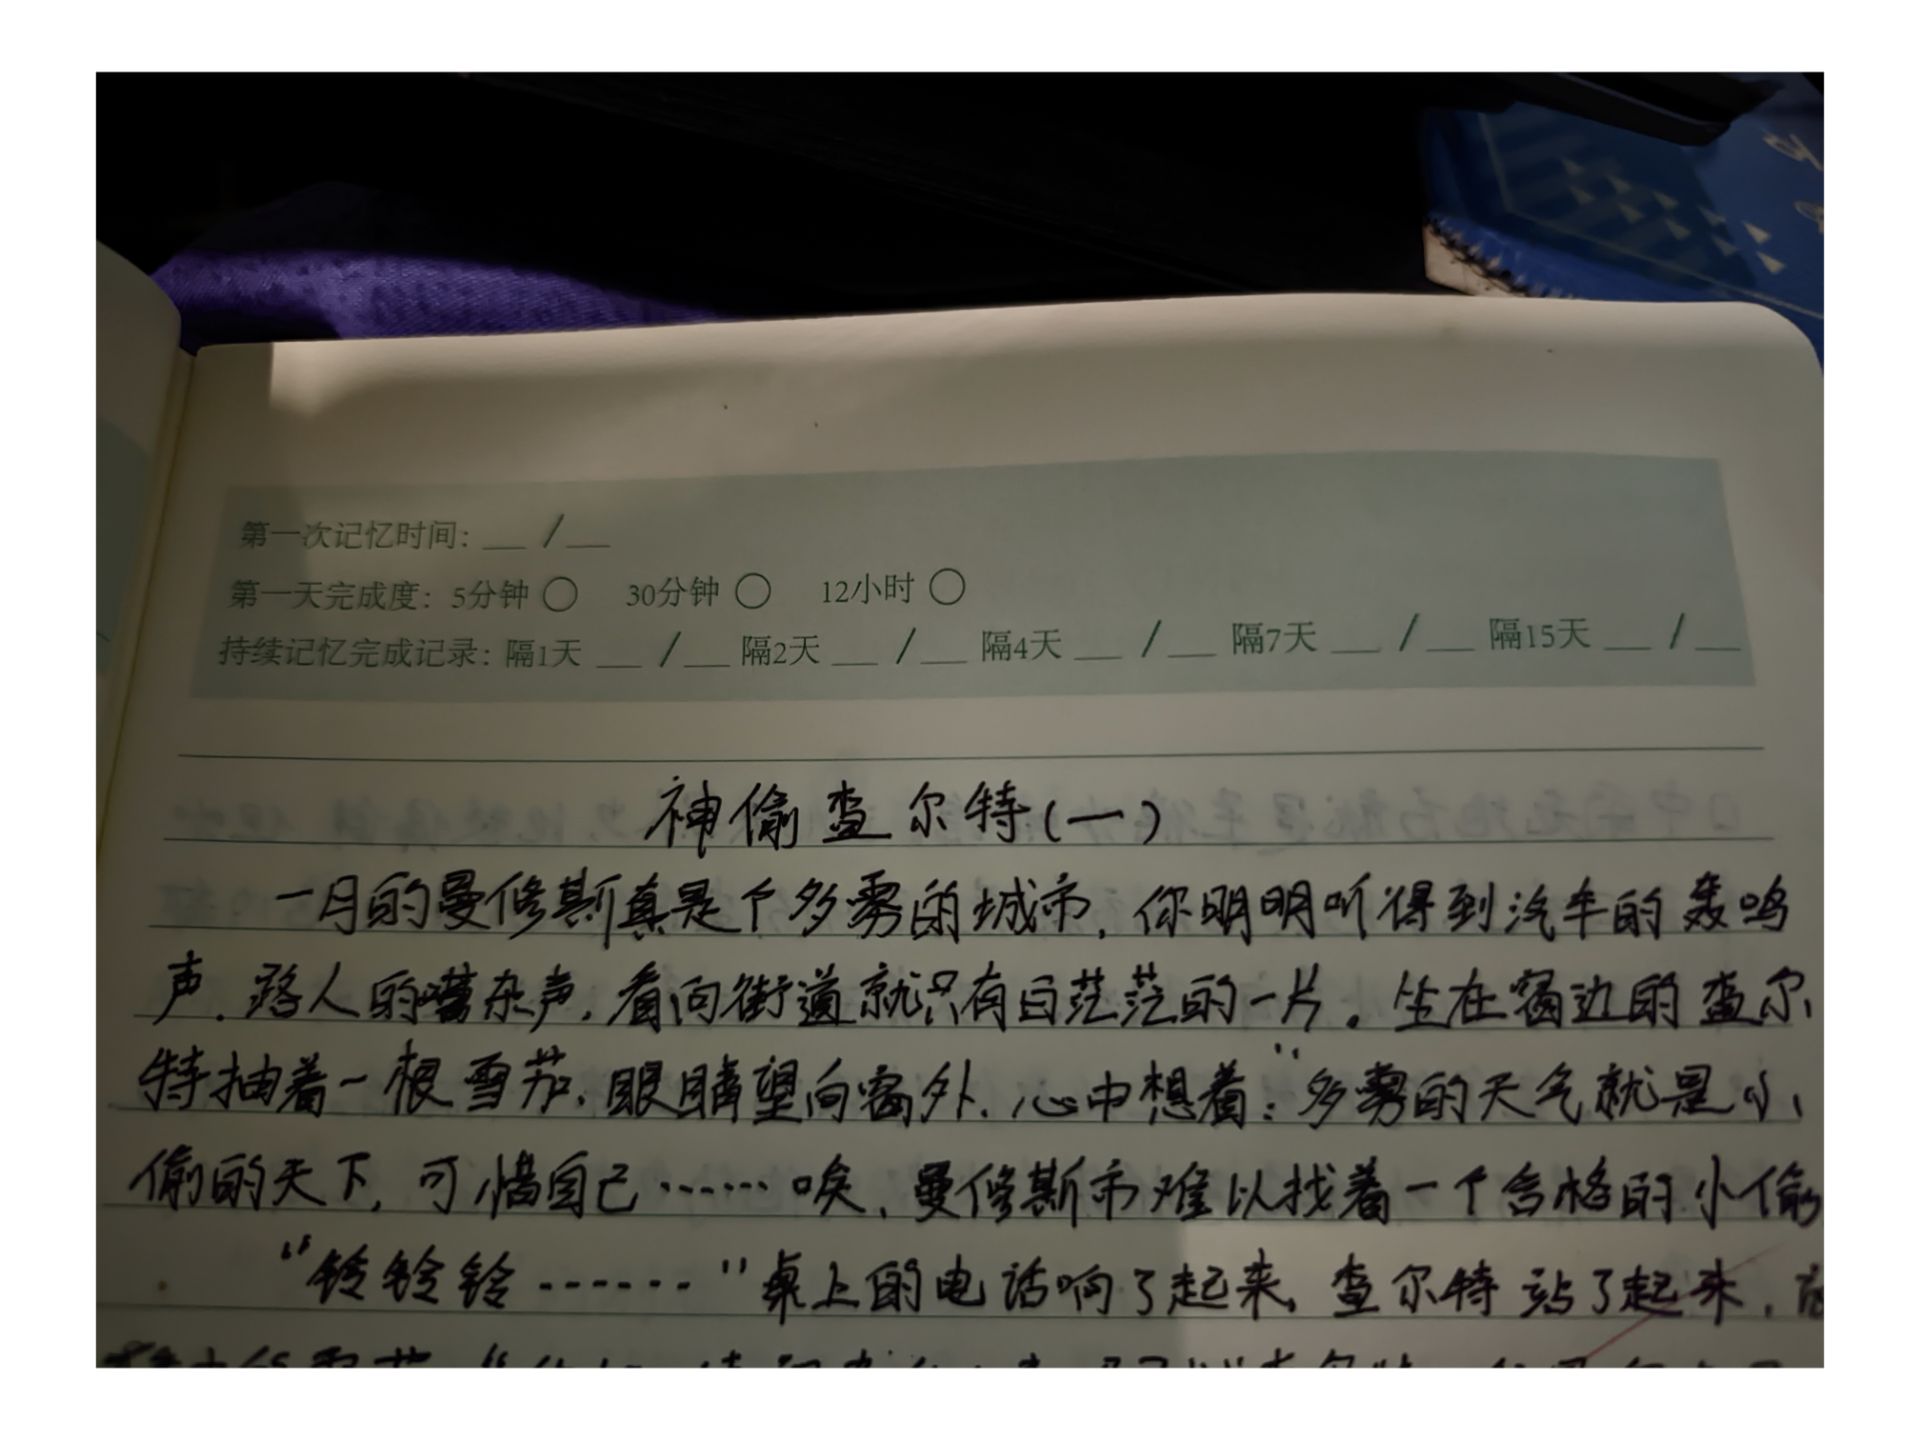 第一次记忆时间：__ /__
第一天完成度：5分钟 ○ 30分钟 ○ 12小时 ○
持续记忆完成记录：隔1天 __ /__ 隔2天 __ /__ 隔4天 __ /__ 隔7天 __ /__ 隔15天 __ /__
神偷查尔特(一)
一月的曼修斯真是个多雾的城市，你明明听得到汽车的轰鸣
声，路人的嘈杂声，看向街道就只有白茫茫的一片。坐在窗边的查尔
特抽着一根雪茄，眼睛望向窗外，心中想着：“多雾的天气就是小
偷的天下，可惜自己……唉，曼修斯市难以找着一个合格的小偷
“铃铃铃……”桌上的电话响了起来，查尔特站了起来，